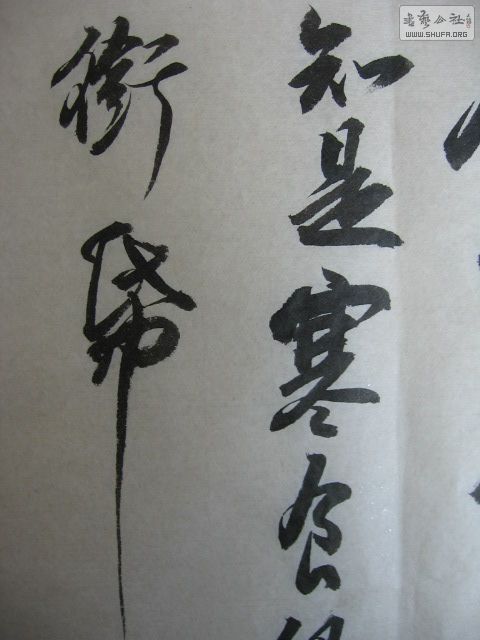 書藝公社
WWW.SHUFA.ORG
知是寒食
銜帋